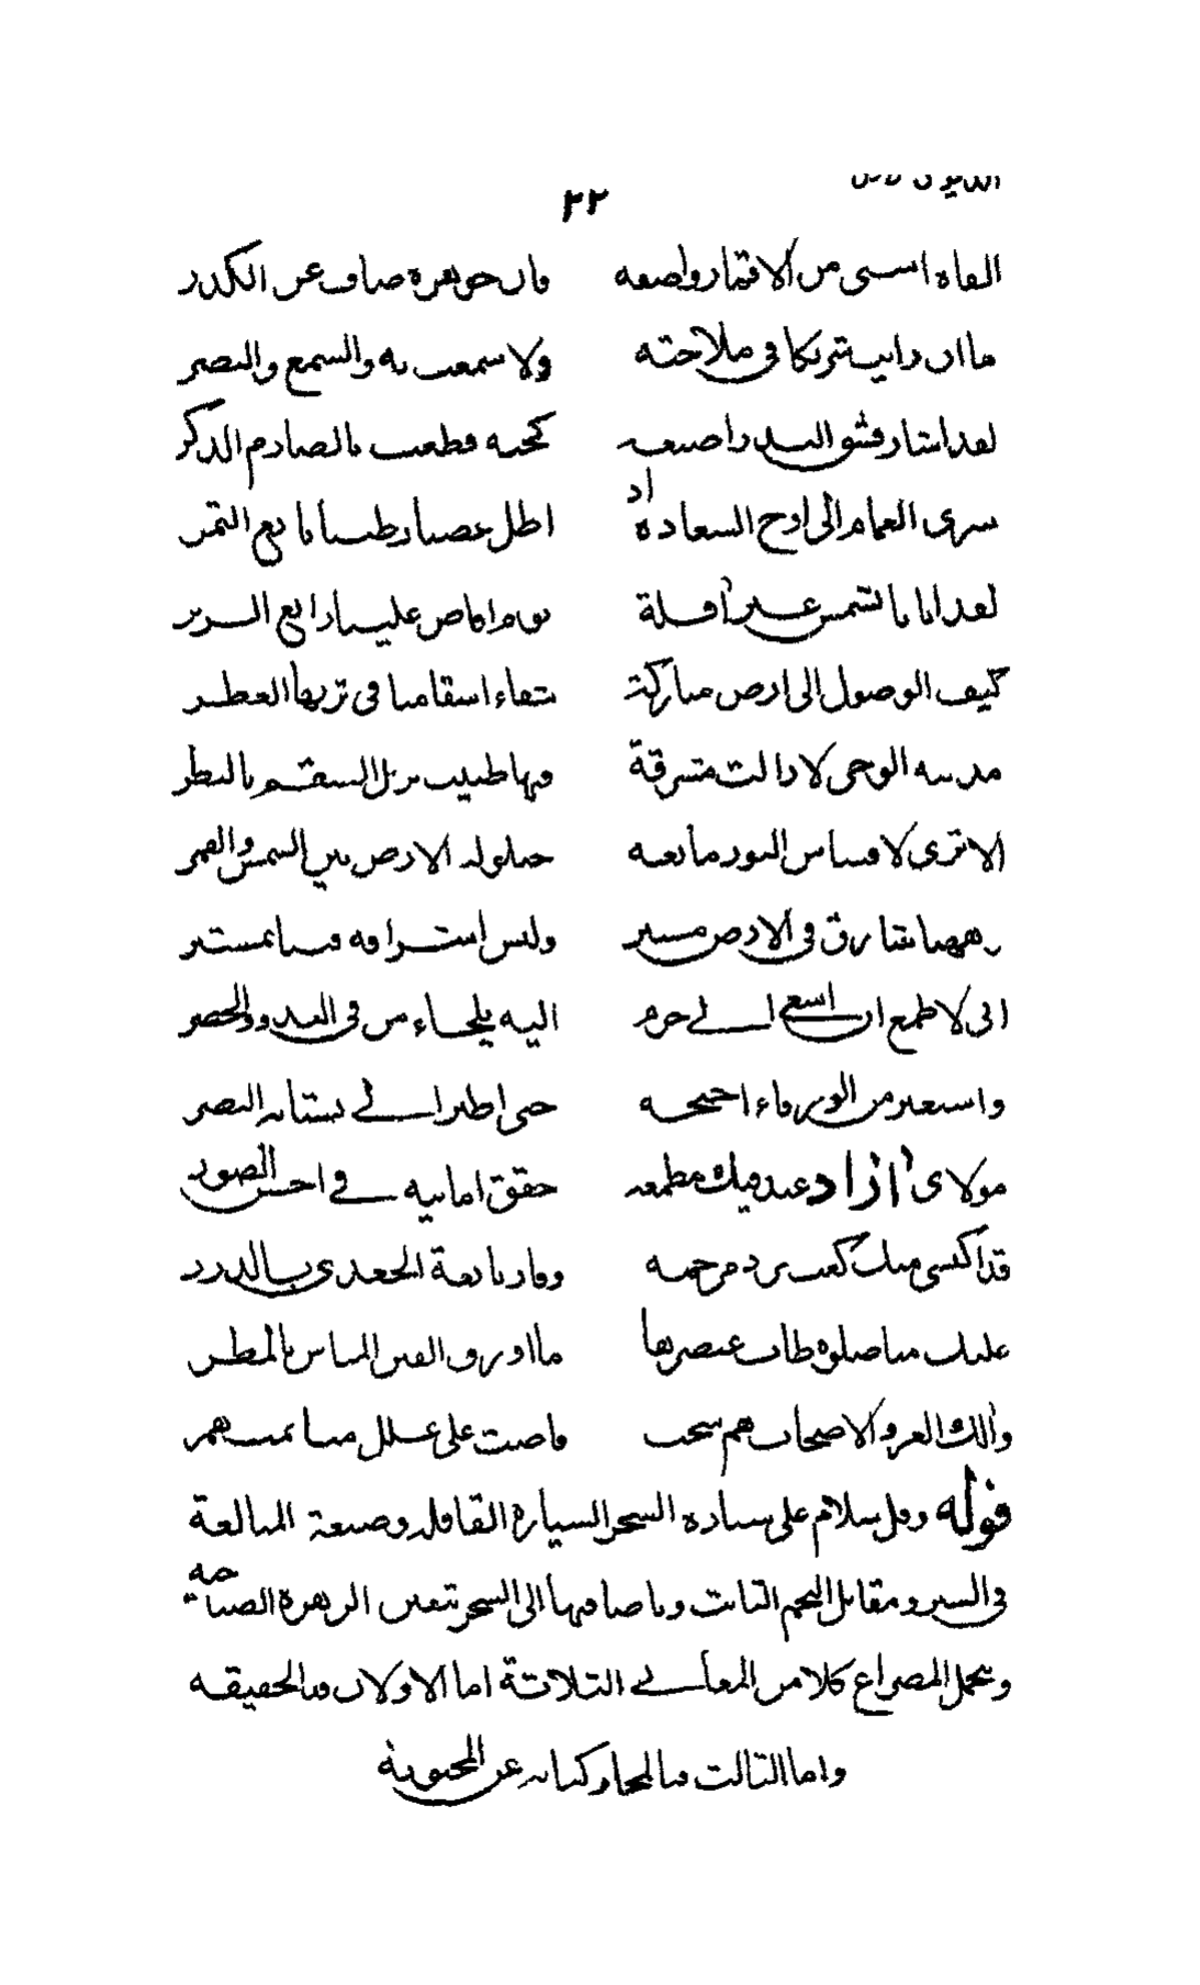 ٢٢
الفاه اسنى من الاقمار واصفه فان جوهره صاف عن الكدر
ما ان رايت شريكا في ملاحته ولا سمعت به والسمع والبصر
لقد اشار فشق البدر اصبعه كجبه قطعت بالصارم الذكر
سرى الغمام الى اوج السعادة اذ اظل غصنا رطيبا يانع الثمر
لقد اتانا بشمس غير آفلة يوم افاض علينا رائع الزبر
كيف الوصول الى ارض مباركة شفاء اسقامنا في تربها العطر
مدرسه الوحي لا زالت مشرقة فيها طبيب يزيل السقم بالنظر
الا ترى لاقتباس النور مانعه حيلولة الارض بين الشمس والقمر
وههنا شارق في الارض مستتر وليس اشراقه فينا بمستتر
اني لاطمع ان اسعى الى حرم اليه يلجاء من في البدو والحضر
واستعير من الورقاء اجنحه حتى اطير الى بستانه النضر
مولاي آزاد عبد فيك مطمعه حقق امانيه في احسن الصور
قد اكتسى منك كعب برد مرحمه وفاز نابغة الجعدي بالدرر
عليك منا صلوة طاب عنصرها ما اورق الغصن المياس بالمطر
وآلك الغر والاصحاب هم سحب فاضت على غلل منا بمنهمر
قوله وقل سلام على سياره السحر السيارة القافله وصيغة المبالغة
في السير ومقابل النجم الثابت وباضافتها الى السحر تتعين الزهرة الصباحيه
ويحمل المصراع كلا من المعاني الثلاثة اما الاولان فبالحقيقه
واما الثالث فبالمجاز كنايه عن المحبوبة